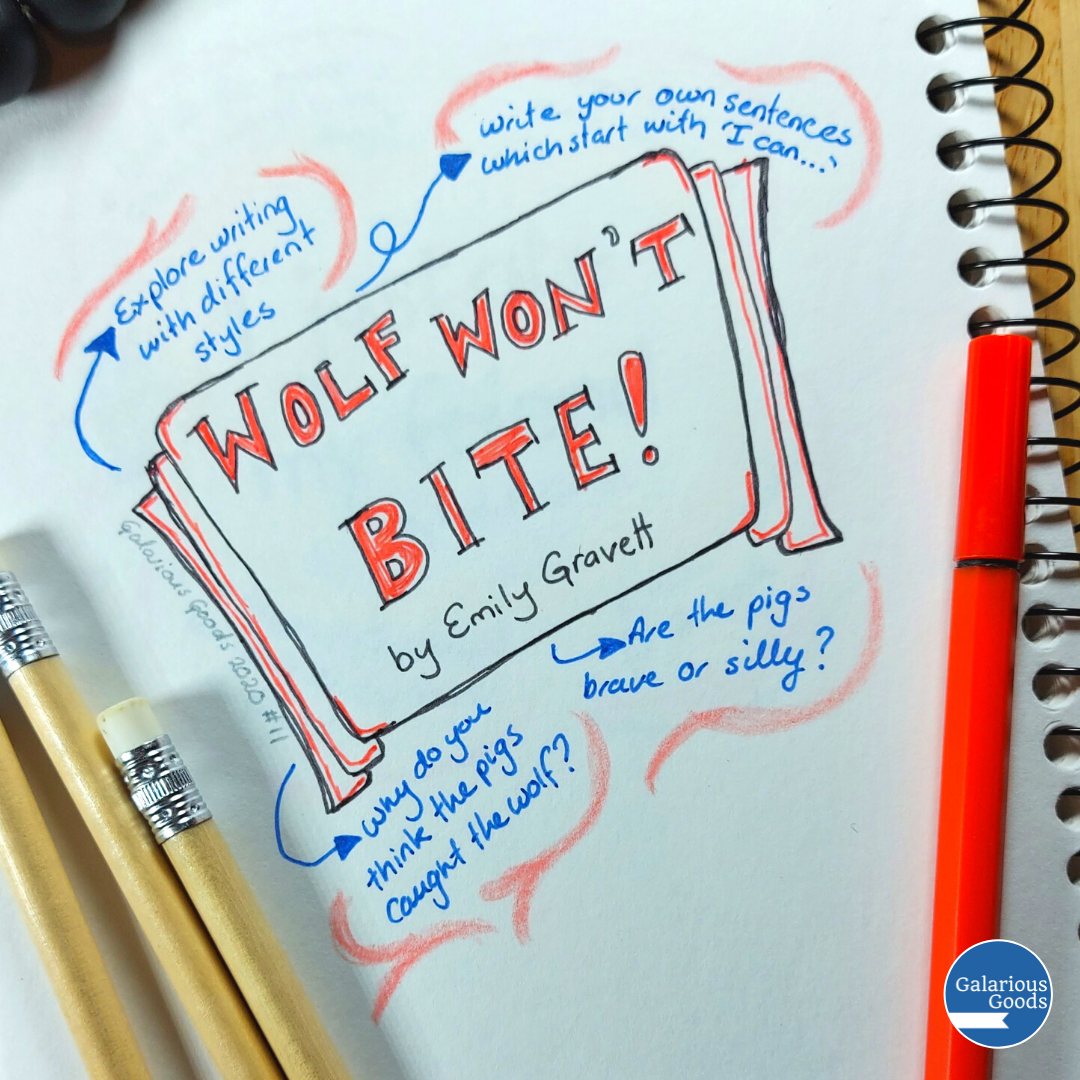 write your own sentences
which start with 'I can...'
Explore writing
with different
styles
WOLF WON'T
BITE!
by Emily Gravett
Are the pigs
brave or silly?
why do you
think the pigs
caught the wolf?
Galarious Goods 2020 #11
Galarious
Goods